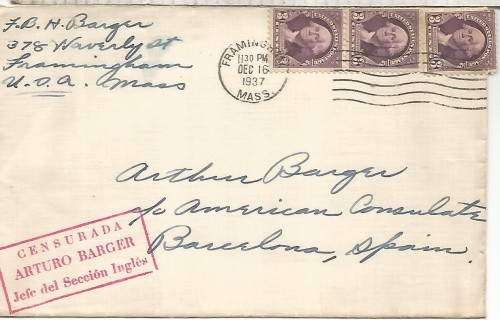 F.B.H. Barger
378 Waverly St
Framingham
U.S.A. Mass
FRAMINGH
11 30 PM
DEC 16
1937
MASS.
Arthur Barger
c/o American Consulate
Barcelona, Spain.
CENSURADA
ARTURO BARGER
Jefe del Sección Inglés